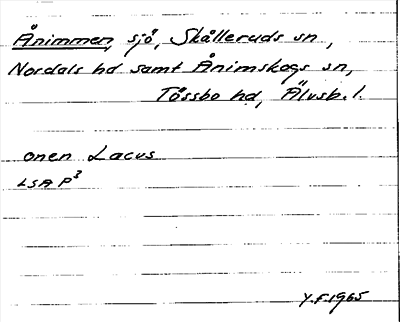 Ånimmen, sjö, Skålleruds sn,
Nordals hd samt Ånimskogs sn,
Tössbo hd, Älvsb. l.
onen Lacus
LSA P³
Y.F. 1965